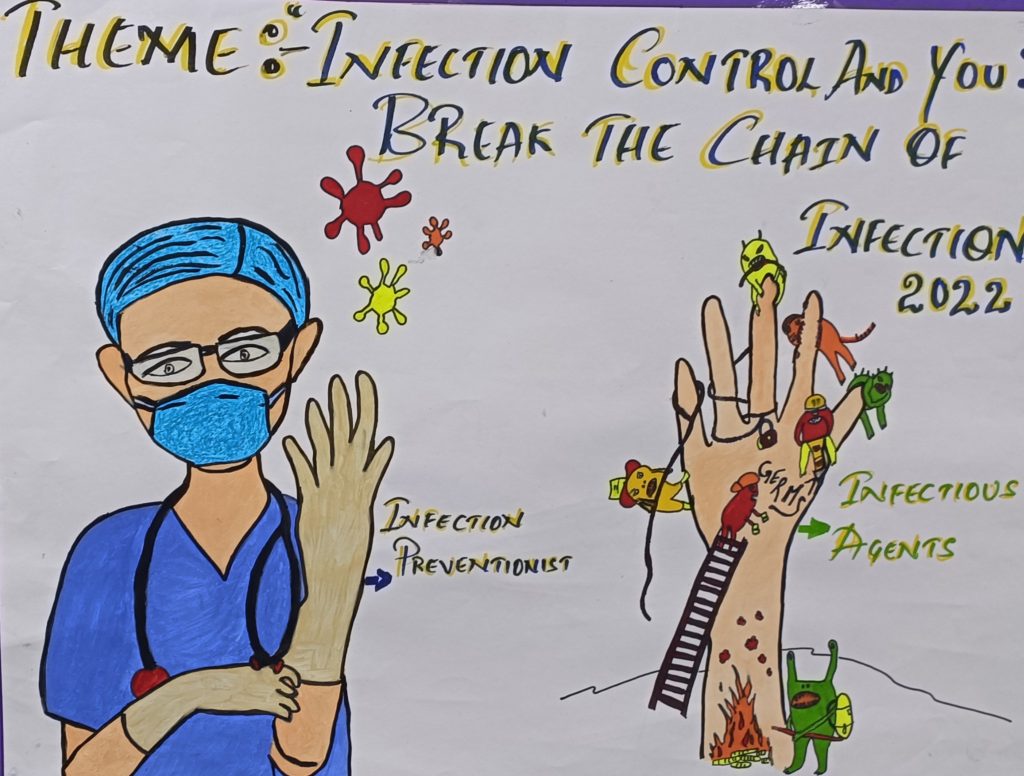 THEME :- "INFECTION CONTROL AND YOU:
BREAK THE CHAIN OF
INFECTION
2022
INFECTION
PREVENTIONIST
GERMS
INFECTIOUS
AGENTS